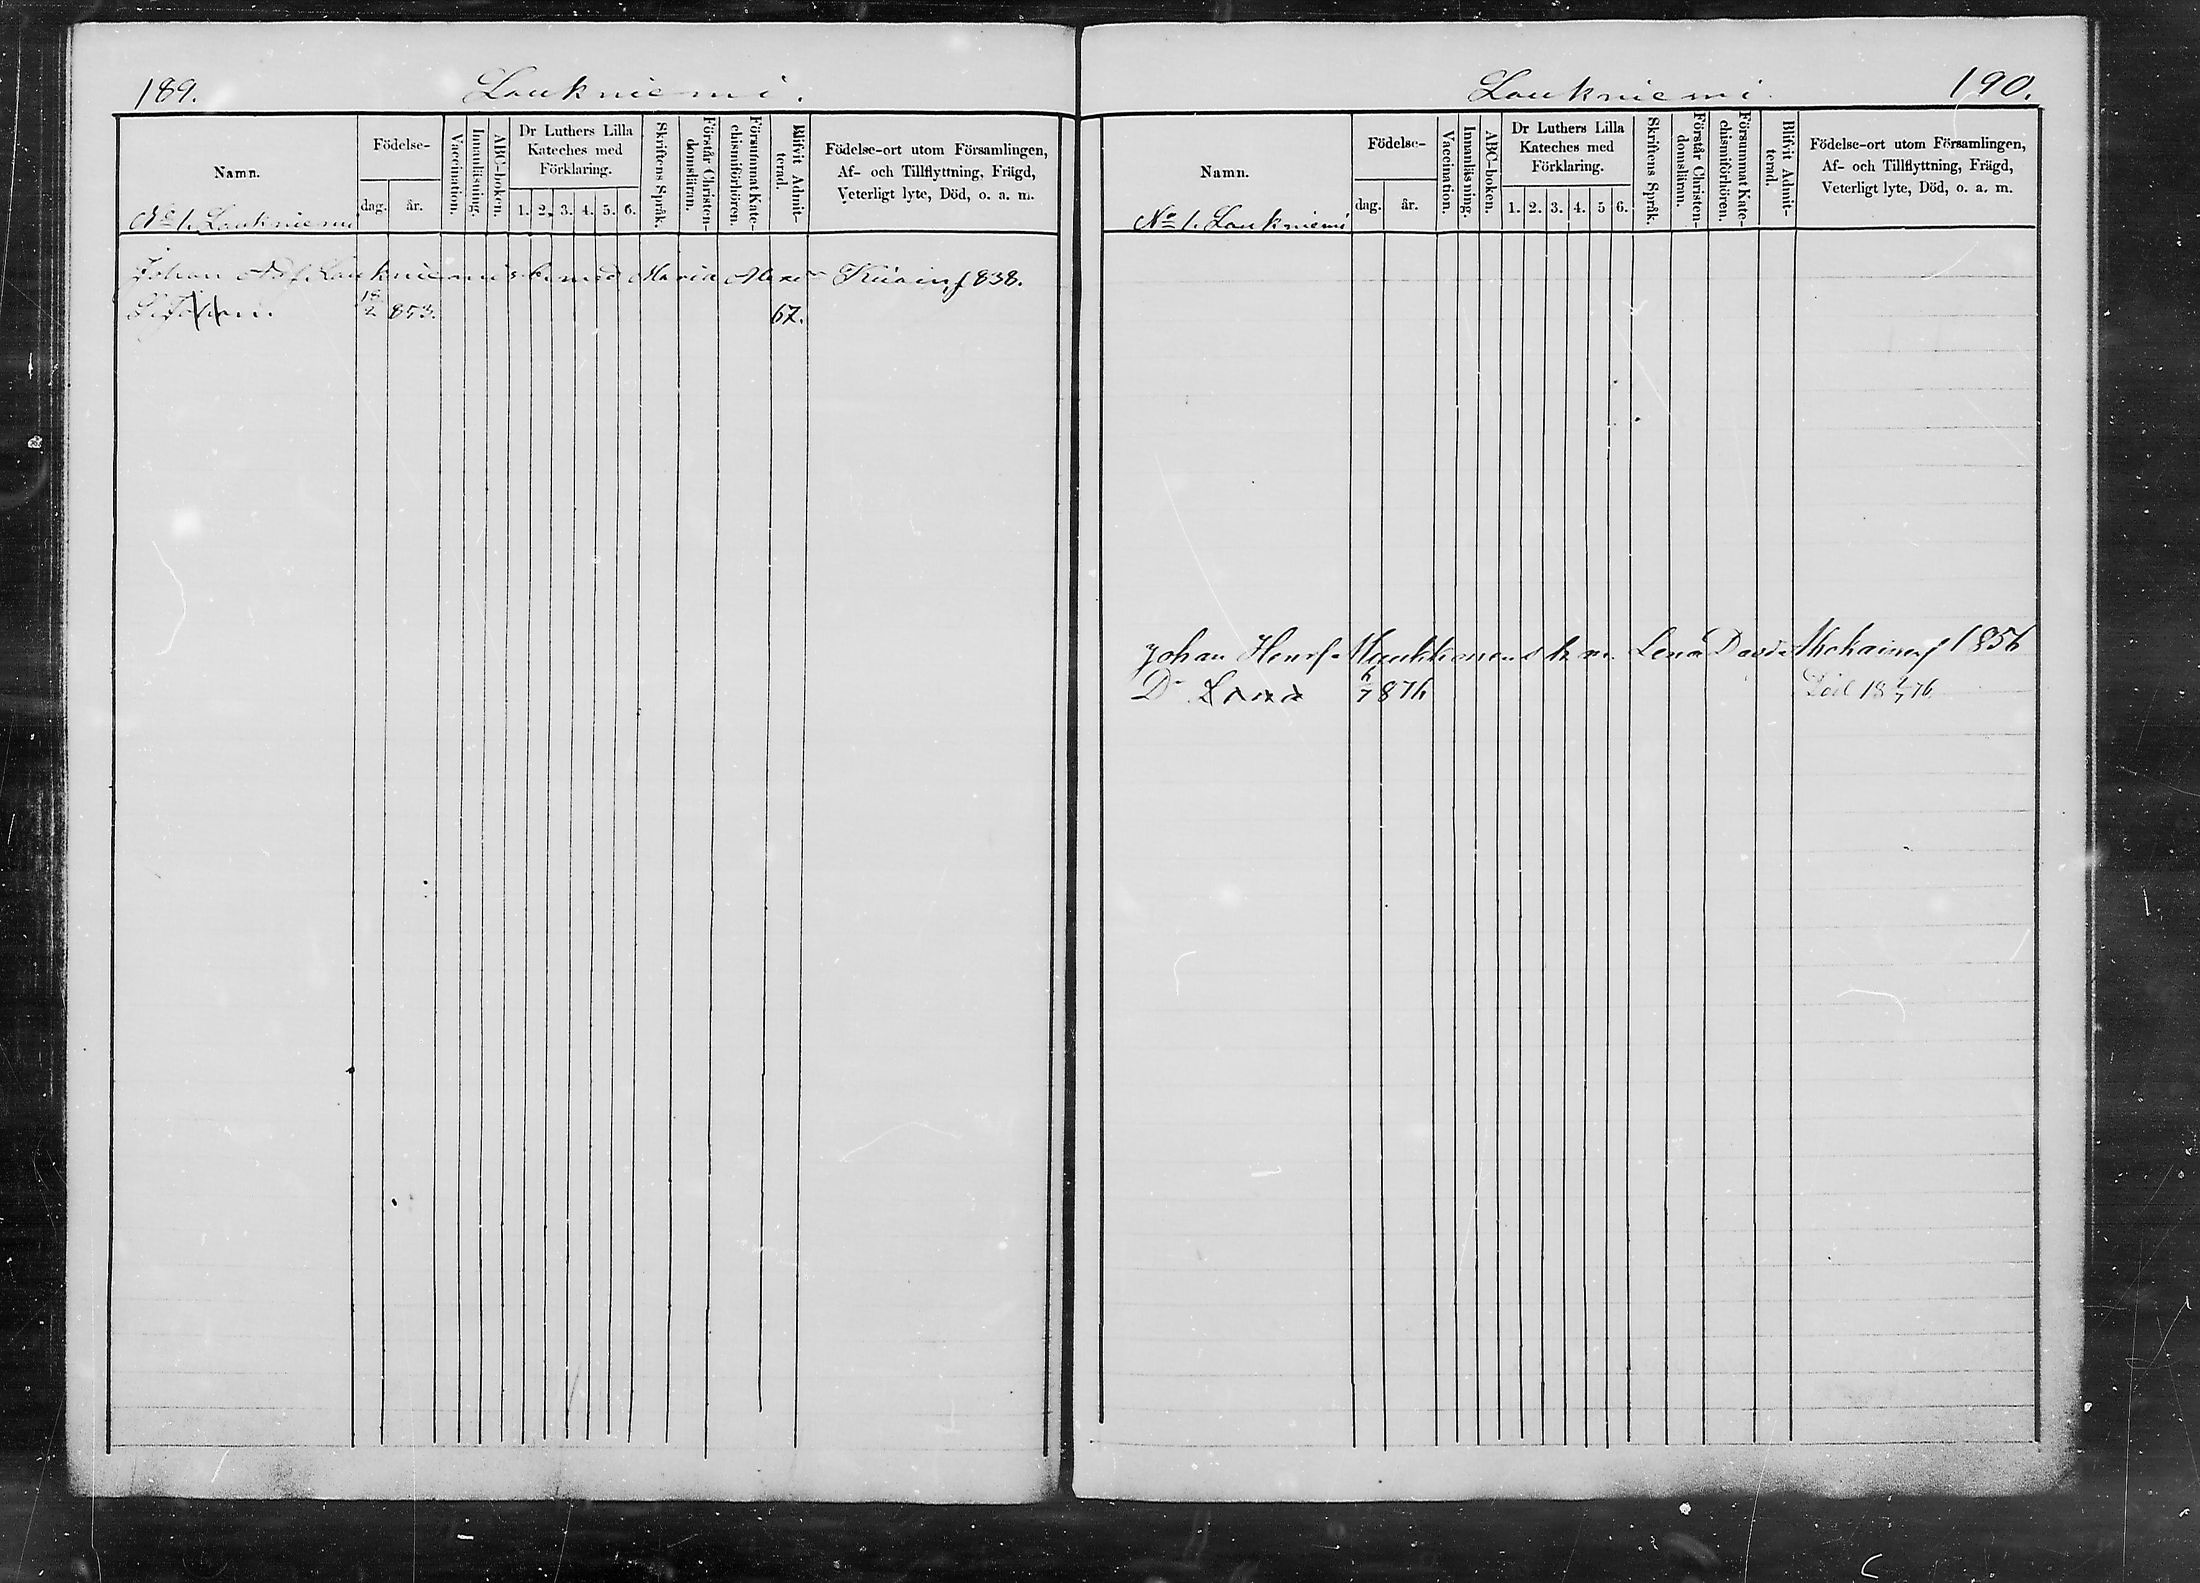 189. Laukniemi.
Namn.
Födelse-
dag. år.
Vaccination.
Innanläsning.
ABC-boken.
Dr Luthers Lilla
Kateches med
Förklaring.
1. 2. 3. 4. 5. 6.
Skriftens Språk.
Förstår Christen-
domsläran.
Försummat Kate-
chismiförhören.
Blifvit Admit-
terad.
Födelse-ort utom Församlingen,
Af- och Tillflyttning, Frägd,
Veterligt lyte, Död, o. a. m.
No 1. Laukniemi
Johan Adf. b. med Maria 838.
S. Johan. 18/2 853. 67.
Laukniemi. 190.
Namn.
Födelse-
dag. år.
Vaccination.
Innanläsning.
ABC-boken.
Dr Luthers Lilla
Kateches med
Förklaring.
1. 2. 3. 4. 5 6.
Skriftens Språk.
Förstår Christen-
domsläran.
Försummat Kate-
chismiförhören.
Blifvit Admit-
terad.
Födelse-ort utom Församlingen,
Af- och Tillflyttning, Frägd,
Veterligt lyte, Död, o. a. m.
No 1. Laukniemi
Johan Henrs. m. Lena Davids
D. 876 Död